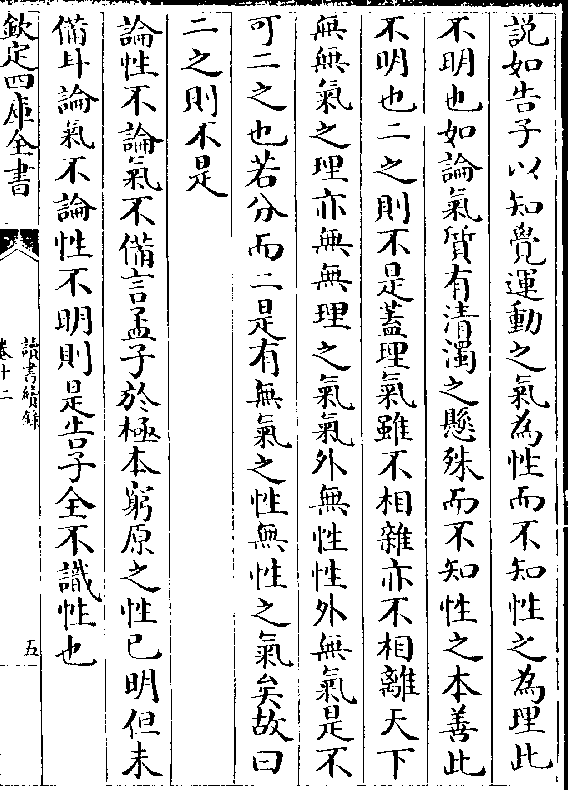 説如告子以知覺運動之氣為性而不知性之為理此
不明也如論氣質有清濁之懸殊而不知性之本善此
不明也二之則不是蓋理氣雖不相雜亦不相離天下
無無氣之理亦無無理之氣氣外無性性外無氣是不
可二之也若分而二是有無氣之性無性之氣矣故曰
二之則不是
論性不論氣不備言孟子於極本窮原之性已明但未
備耳論氣不論性不明則是告子全不識性也
欽定四庫全書
讀書續録
卷十二
五